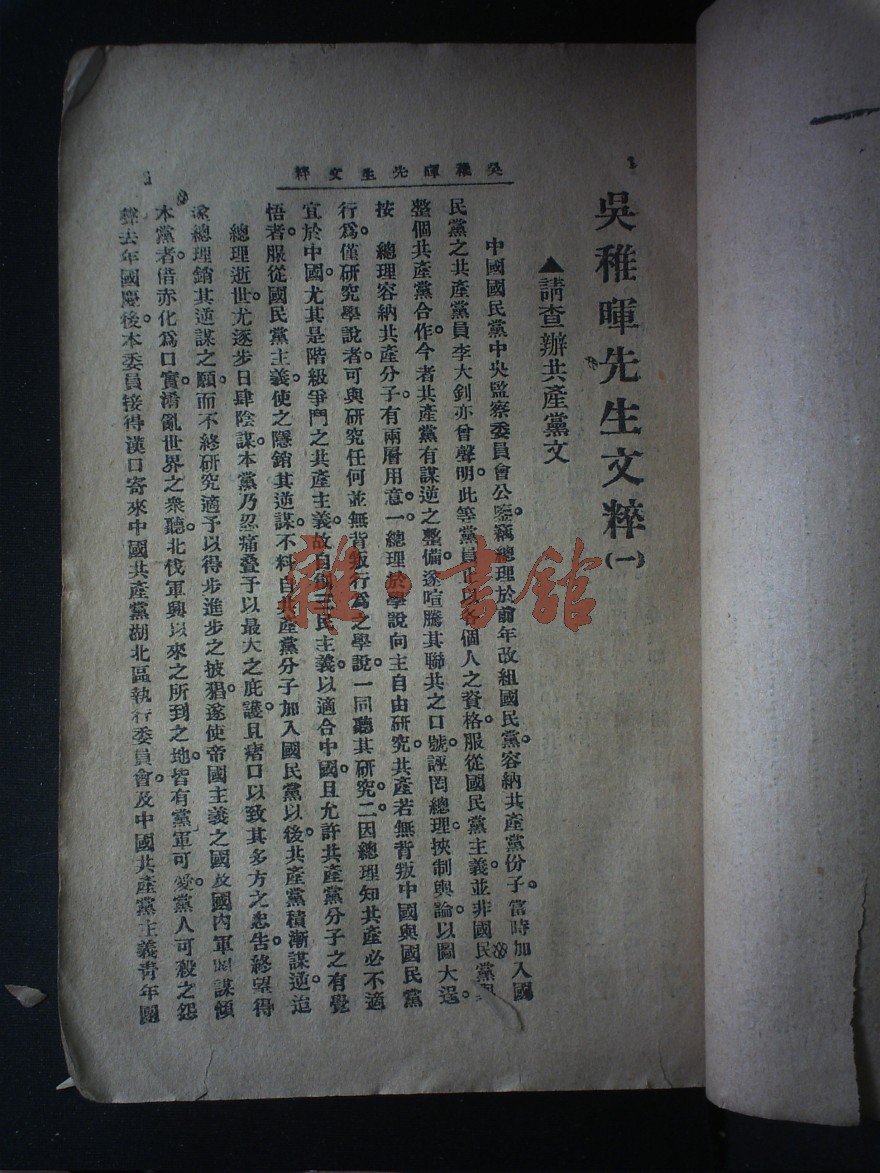 吳稚暉先生文粹
吳稚暉先生文粹(一)
▲請查辦共產黨文
中國國民黨中央監察委員會公鑒。竊總理於前年改組國民黨。容納共產黨份子。當時加入國
民黨之共產黨員李大釗亦曾聲明此等黨員止以各個人之資格服從國民黨主義。並非國民黨與
整個共產黨合作今者共產黨有謀逆之整備遂喧騰其聯共之口號。誣罔總理挾制輿論以圖大逞。
按 總理容納共產分子。有兩層用意。一總理於學說向主自由研究。共產若無背叛中國與國民黨
行爲。僅研究學說者。可與研究任何並無背叛行爲之學說。一同聽其研究。二因總理知共產必不適
宜於中國。尤其是階級爭鬥之共產主義。故自創三民主義。以適合中國。且允許共產黨分子之有覺
悟者。服從國民黨主義。使之隱銷其逆謀。不料自共產黨分子加入國民黨以後。共產黨積漸謀逆。迨
總理逝世尤逐步日肆陰謀。本黨乃忍痛疊予以最大之庇護。且瘏口以致其多方之忠告。終望得
遂總理銷其逆謀之願。而不終研究適予以得步進步之披猖。遂使帝國主義之國及國內軍閥謀傾
本黨者。借亦化爲口實。淆亂世界之衆聽。北伐軍興以來之所到之地。皆有黨軍可愛。黨人可殺之怨
聲去年國慶後。本委員接得漢口寄來中國共產黨湖北區執行委員會。及中國共產黨主義青年團
雜·書館